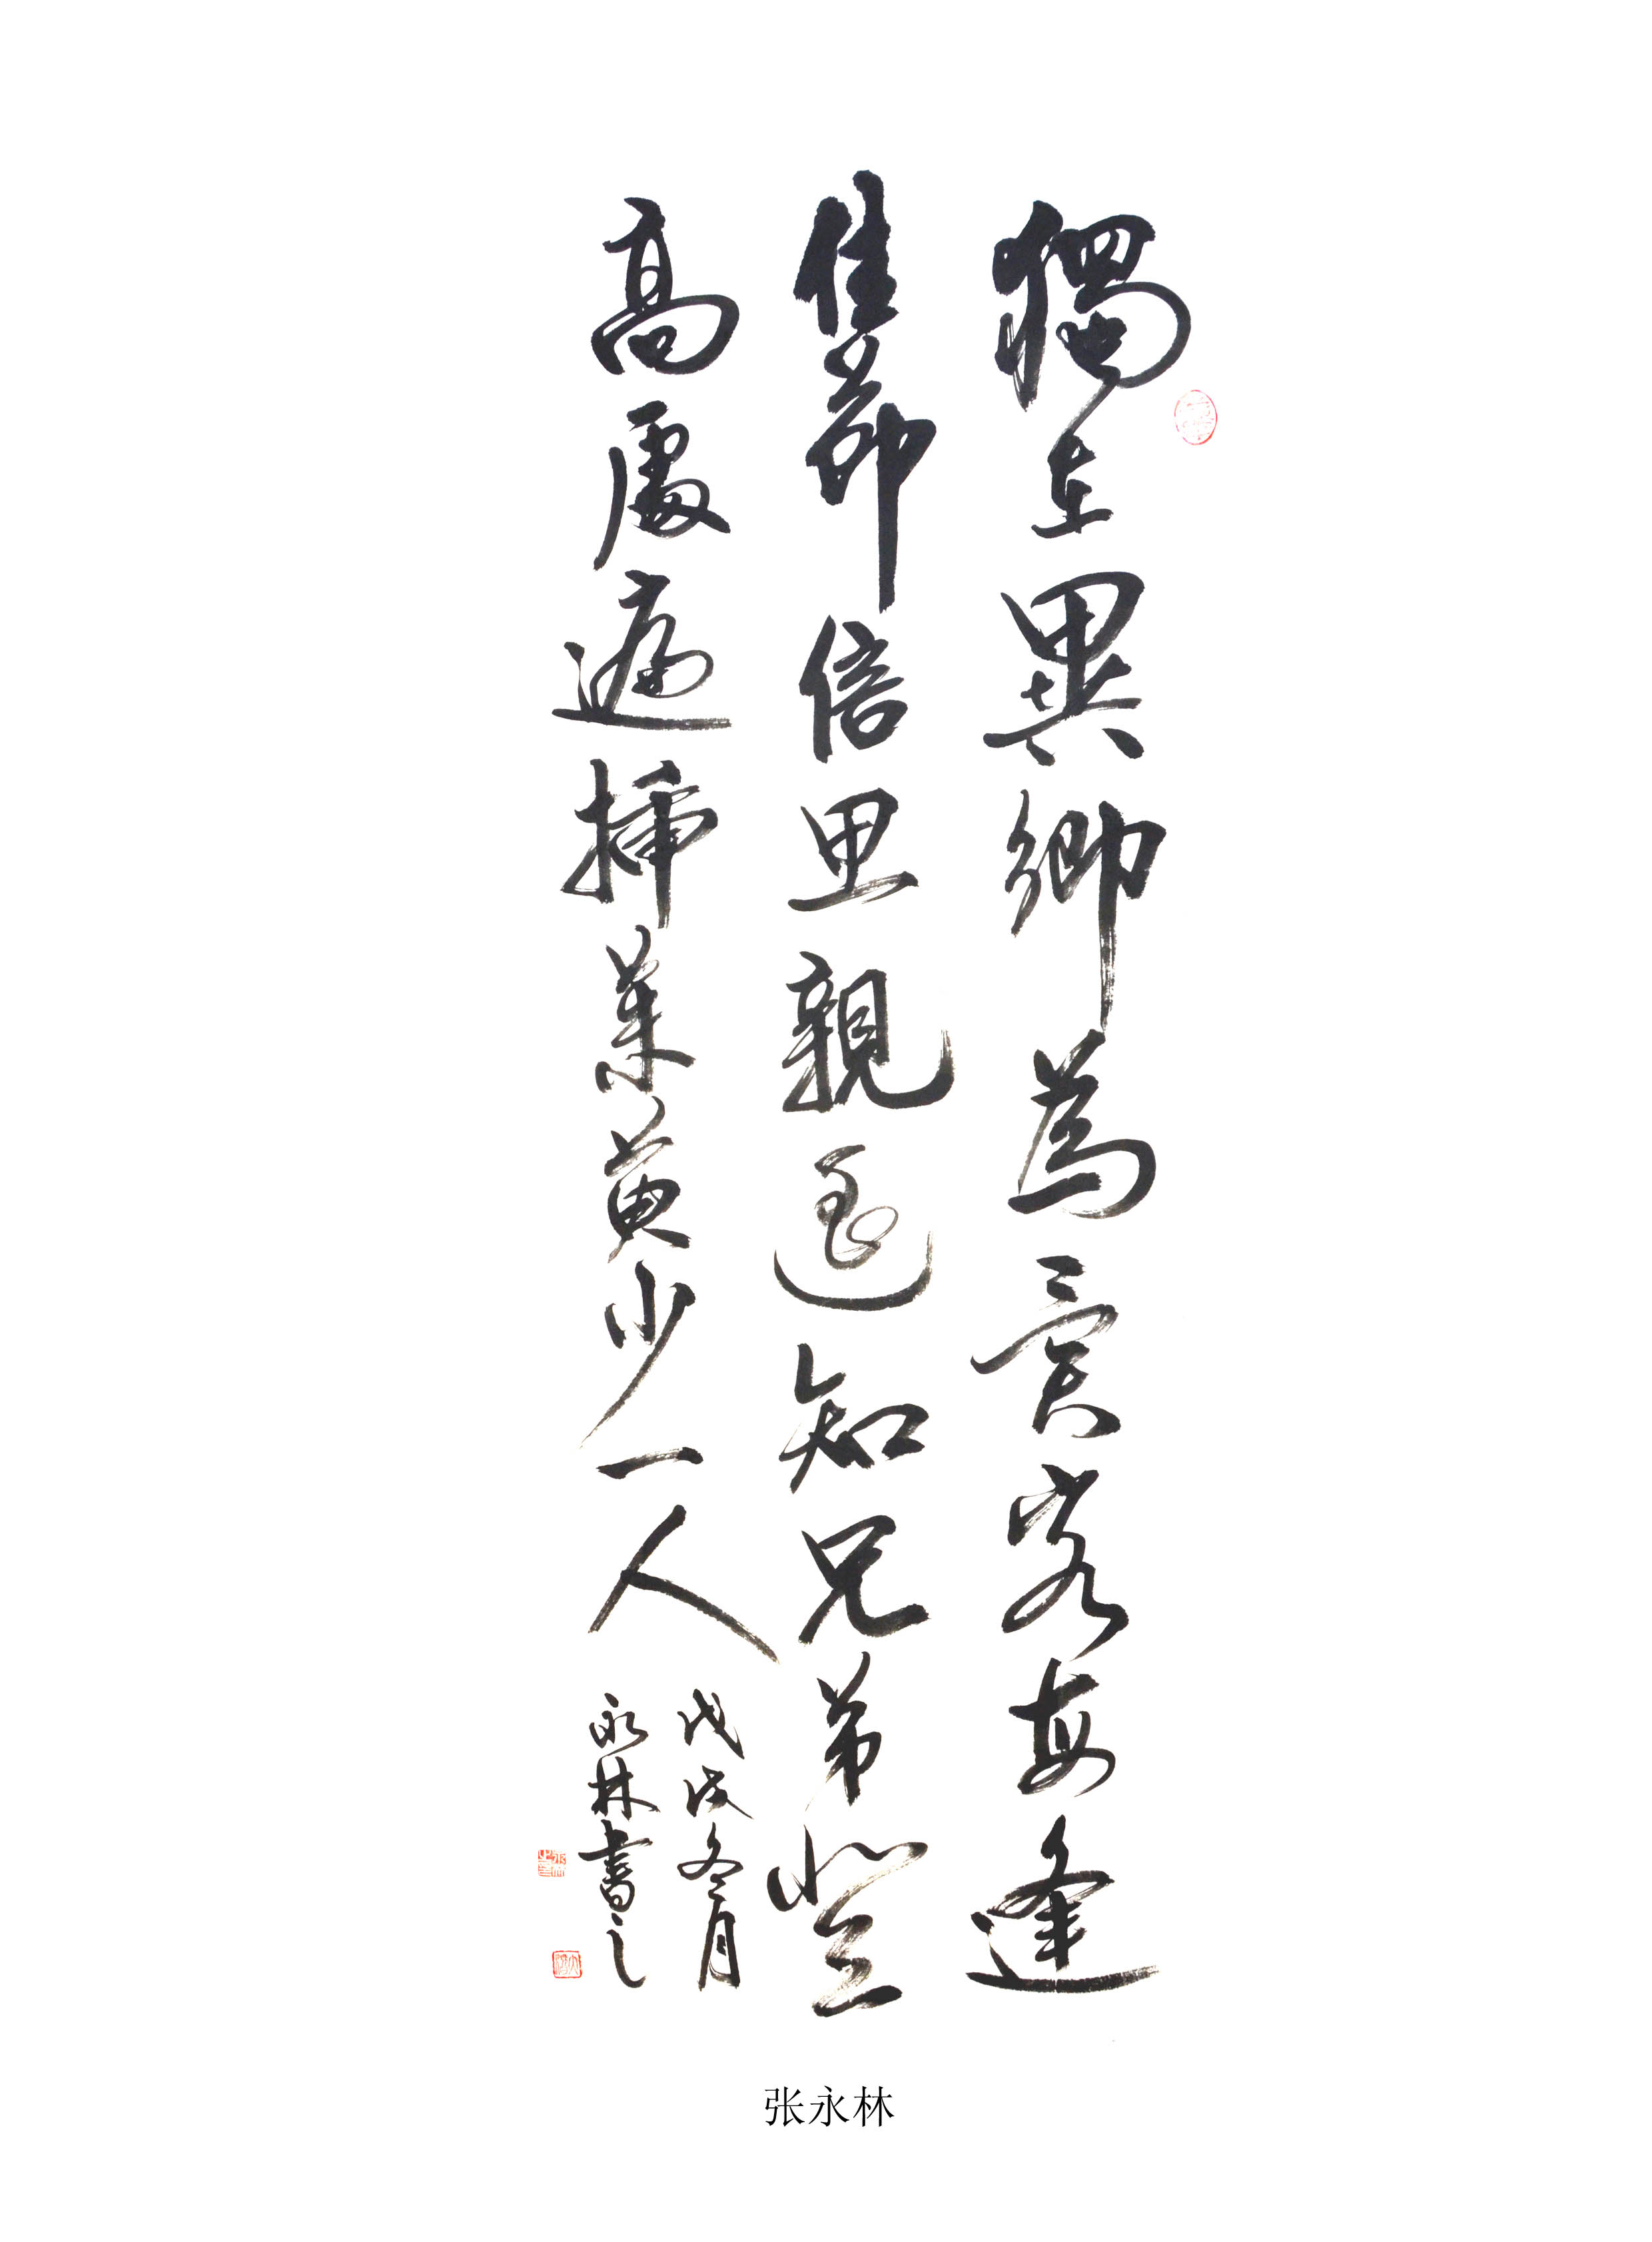 獨在異鄉為異客每逢
佳節倍思親遙知兄弟登
高處遍插茱萸少一人
戊戌冬月
永林書之
张永林